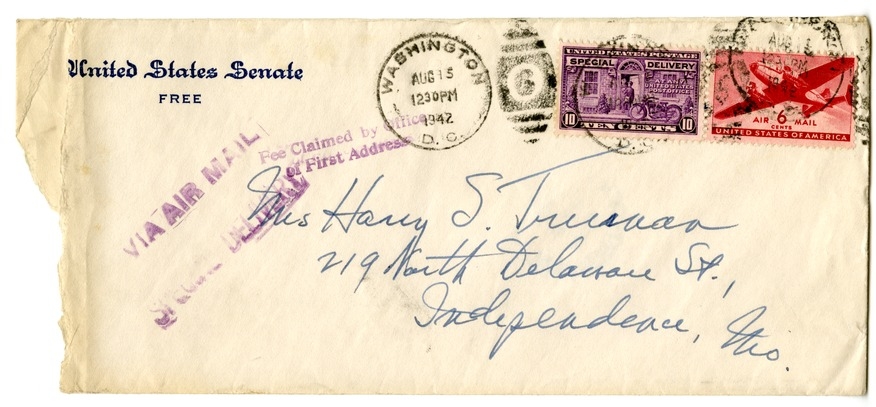 United States Senate
FREE
WASHINGTON
AUG 15
1230 PM
1942
D. C.
UNITED STATES POSTAGE
SPECIAL DELIVERY
AT ANY
UNITED STATES
POST OFFICE
10 TEN CENTS 10
AUG 15
PM
AIR 6 MAIL
CENTS
UNITED STATES OF AMERICA
VIA AIR MAIL
SPECIAL DELIVERY
Fee Claimed by Office
of First Address
Mrs Harry S. Truman
219 North Delaware St.,
Independence, Mo.